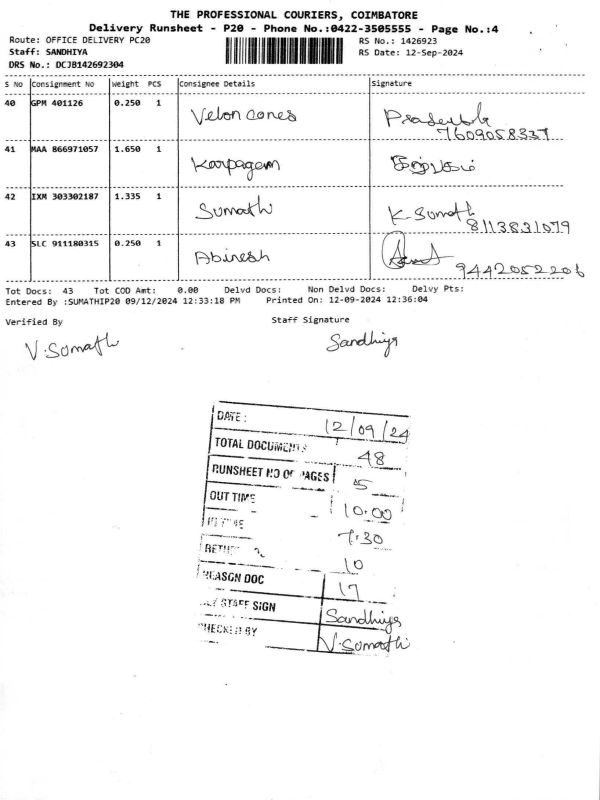 THE PROFESSIONAL COURIERS, COIMBATORE
Delivery Runsheet - P20 - Phone No.:0422-3505555 - Page No.:4
Route: OFFICE DELIVERY PC20
RS No.: 1426923
Staff: SANDHIYA
RS Date: 12-Sep-2024
DRS No.: DCJB142692304
S No Consignment No Weight PCS Consignee Details Signature
40 GPM 401126 0.250 1 Velon cones
7609058337
41 MAA 866971057 1.650 1 Karpagam கற்பகம்
42 IXM 303302187 1.335 1 Sumathi K. Sumathi
8113831079
43 SLC 911180315 0.250 1 Abinesh
9442052206
Tot Docs: 43 Tot COD Amt: 0.00 Delvd Docs: Non Delvd Docs: Delvy Pts:
Entered By :SUMATHIP20 09/12/2024 12:33:18 PM Printed On: 12-09-2024 12:36:04
Verified By Staff Signature
V. Sumathi Sandhiya
DATE : 12/09/24
TOTAL DOCUMENTS 48
RUNSHEET NO OF PAGES 5
OUT TIME 10.00
IN TIME 7.30
10
REASON DOC 17
STAFF SIGN Sandhiya
CHECKED BY V. Sumathi